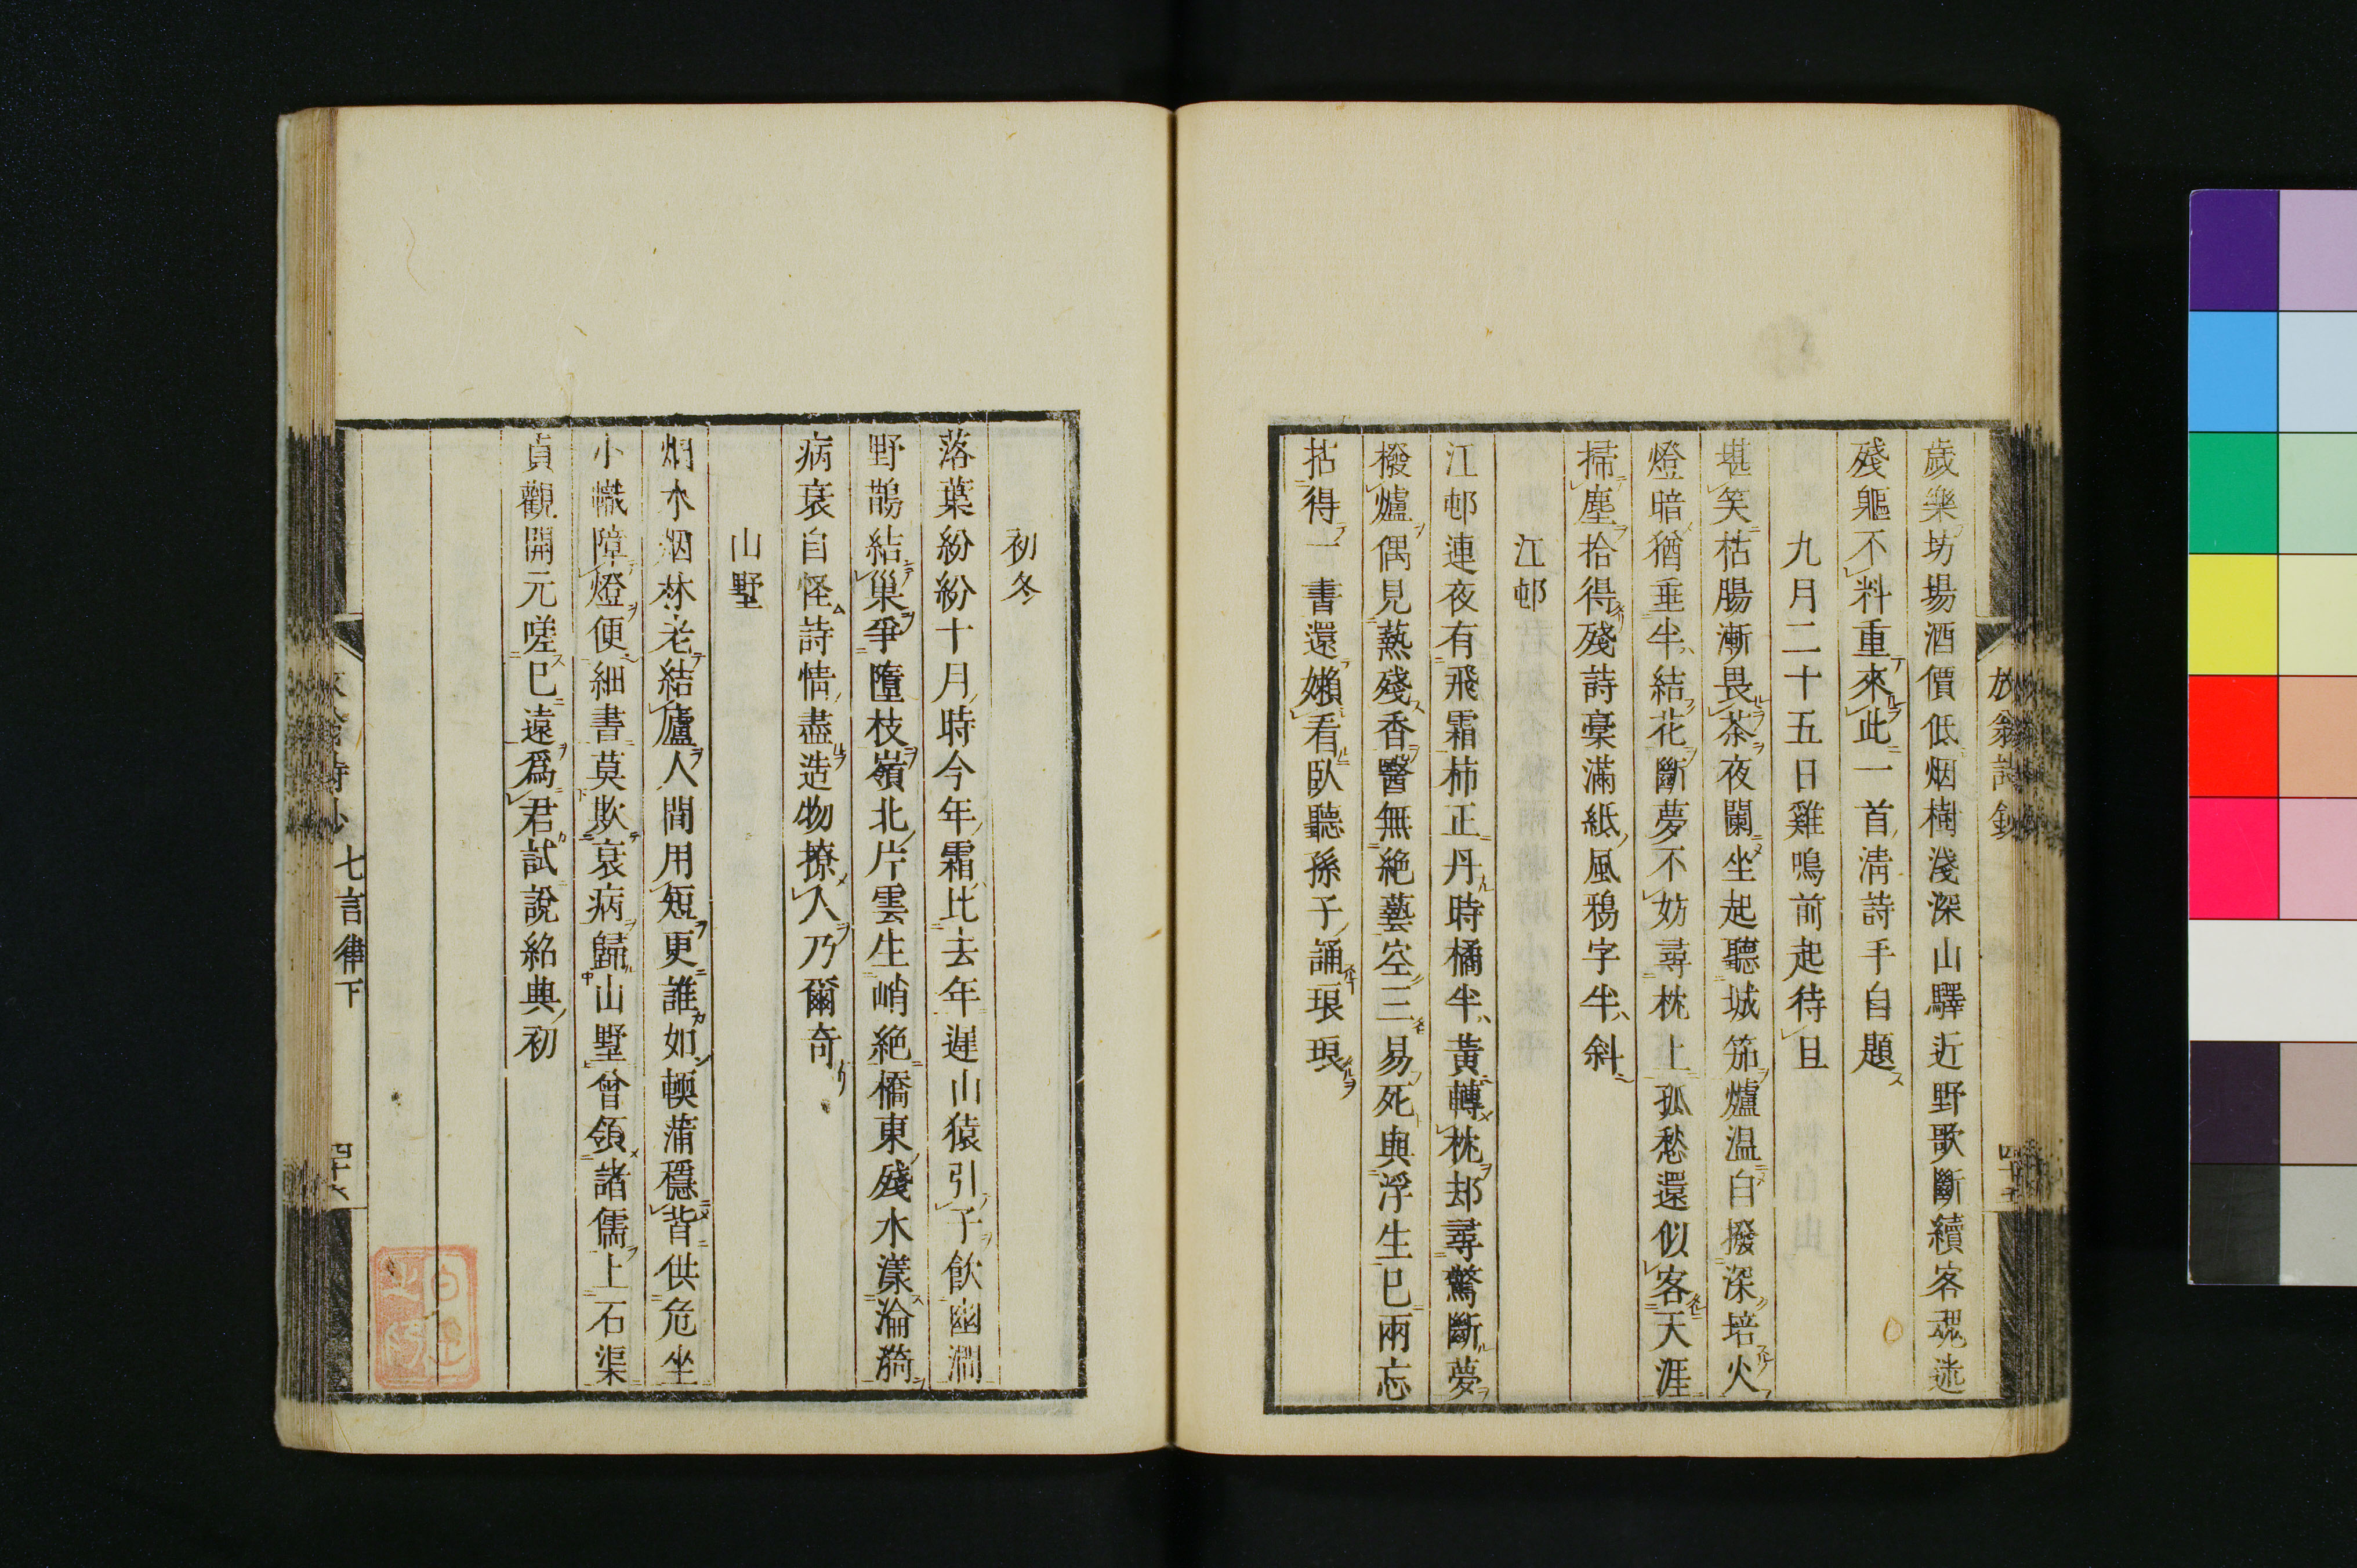 歲樂坊場酒價低烟樹淺深山驛近野歌斷續客魂迷
殘軀不料重來此一首淸詩手自題
九月二十五日雞鳴前起待旦
堪笑枯腸漸畏茶夜闌坐起聽城笳爐温自撥深培火
燈暗猶垂半結花斷夢不妨尋枕上孤愁還似客天涯
掃塵拾得殘詩稾滿紙風鴉字半斜
江邨
江邨連夜有飛霜柿正丹時橘半黃轉枕却尋驚斷夢
撥爐偶見爇殘香醫無絕藝空三易死與浮生已兩忘
拈得一書還嬾看臥聽孫子誦琅琅
放翁詩鈔
初冬
落葉紛紛十月時今年霜比去年遲山猿引子飲幽澗
野鵲結巢爭墮枝嶺北片雲生峭絕橋東殘水漾淪漪
病衰自怪詩情盡造物撩人乃爾奇
山墅
烟水烟林老結廬人間用短更誰如輭蒲穩背供危坐
小幟障燈便細書莫欺衰病歸山墅曾領諸儒上石渠
貞觀開元嗟已遠爲君試說紹興初
七言律下